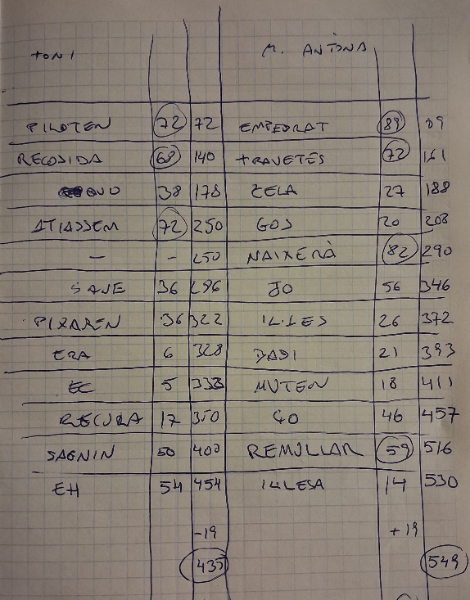 TONI M. ANTÒNIA
PILOTEN 72 72 EMPEDRAT 89 89
RECOSIDA 68 140 TRAVETES 72 161
38 178 ZELA 27 188
ATIASSEM 72 250 GOS 20 208
- - 250 NAIXERÀ 82 290
36 286 JO 56 346
PIXAREN 36 322 IL·LES 26 372
ERA 6 328 DADI 21 393
EC 5 333 MUTEN 18 411
RECURA 17 350 GO 46 457
SAGNIN 50 400 REMULLAR 59 516
EH 54 454 14 530
-19 +19
435 549